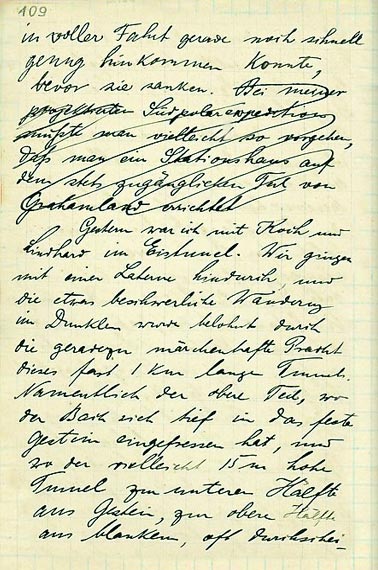 109
in voller Fahrt gerade noch schnell
genug hinkommen konnte,
bevor sie sanken. Bei meiner
projektierten Südpolarexpedition
müsste man vielleicht so vorgehen,
daß man ein Stationshaus auf
dem stets zugänglichen Teil von
Grahamland errichtet
Gestern war ich mit Koch und
Lindhard im Eistunnel. Wir gingen
mit einer Laterne hindurch, und
die etwas beschwerliche Wanderung
im Dunklen wurde belohnt durch
die geradezu märchenhafte Pracht
dieses fast 1 km langen Tunnels.
Namentlich der obere Teil, wo
der Bach sich tief in das feste
Gestein eingefressen hat, und
wo der vielleicht 15 m hohe
Tunnel zur unteren Hälfte
aus Gestein, zur obere Hälfte
aus blankem, oft durchschei-